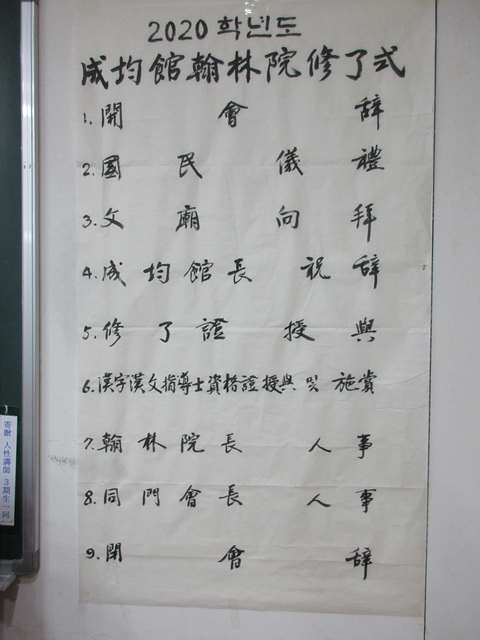 2020학년도
成均館翰林院修了式
1. 開會辞
2. 國民儀禮
3. 文廟向拜
4. 成均館長 祝辞
5. 修了證 授與
6. 漢字漢文指導士資格證授與 및 施賞
7. 翰林院長 人事
8. 同門會長 人事
9. 閉會辞
寄贈 人性講師 3期生一同